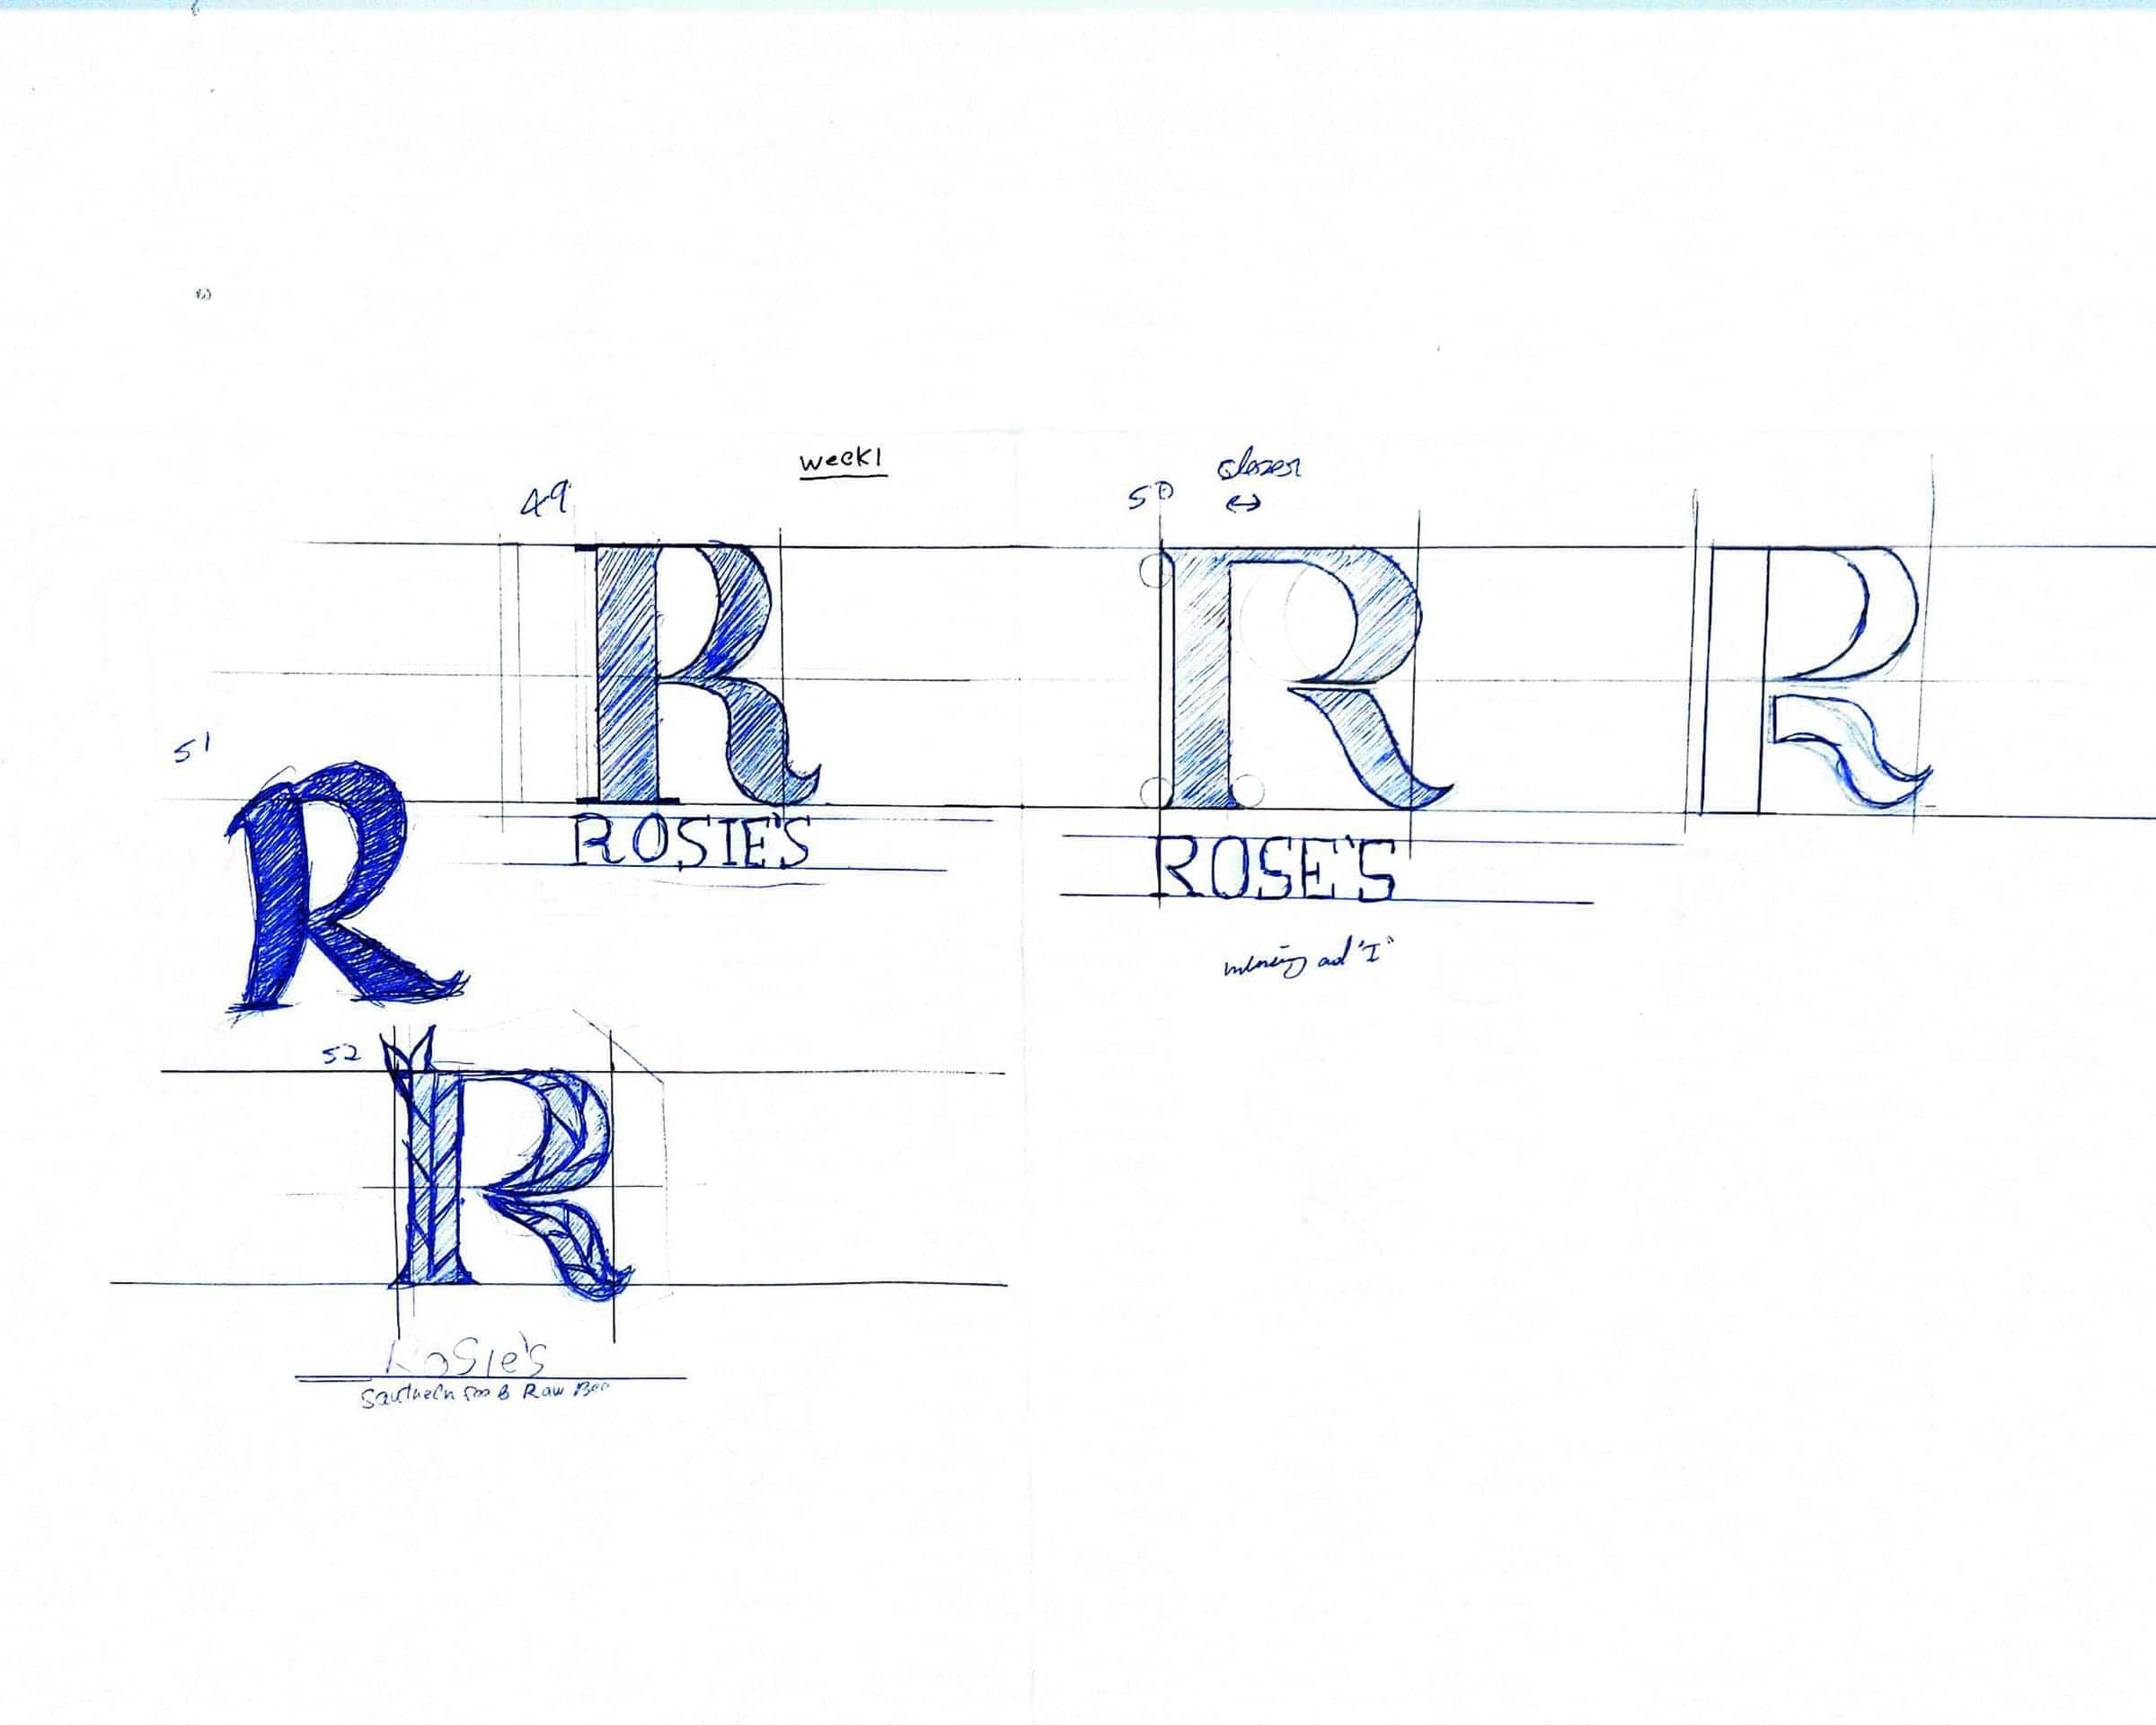 week1
49
R
ROSIE'S
50
closer
R
ROSE'S
ad "I"
R
51
R
52
R
Rosie's
Southern Raw Bar